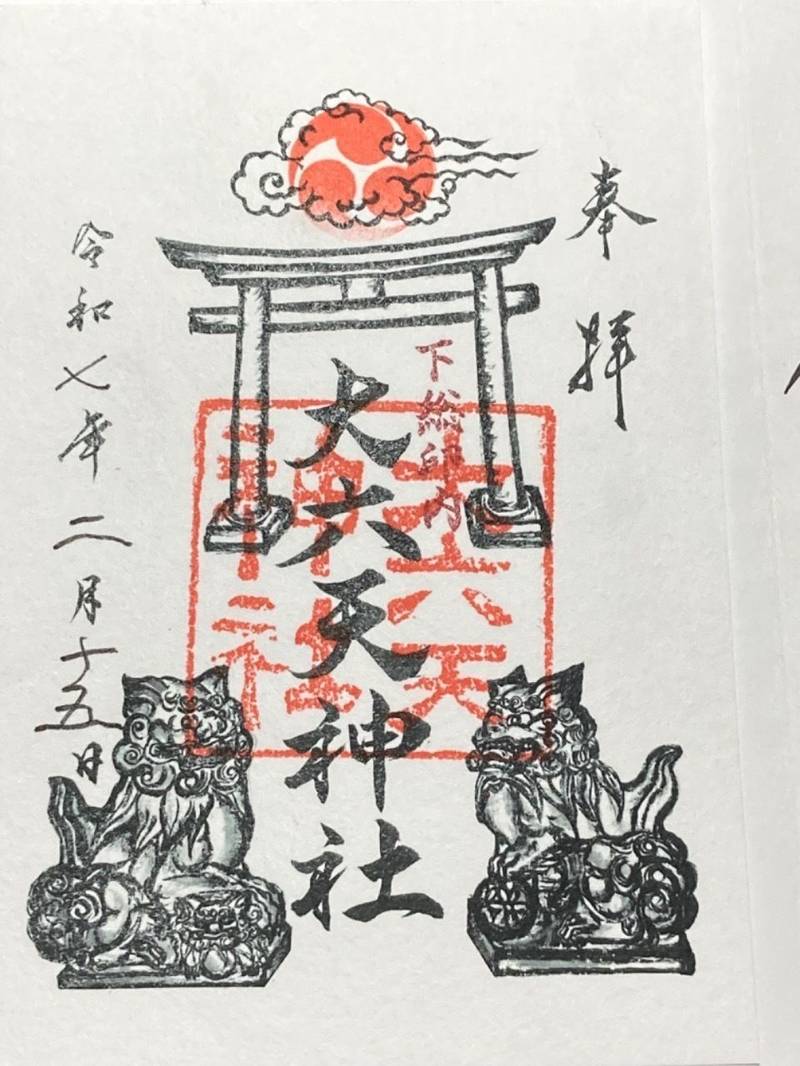 奉拝
下総印内
大六天神社
大六天
神社
令和七年二月十五日